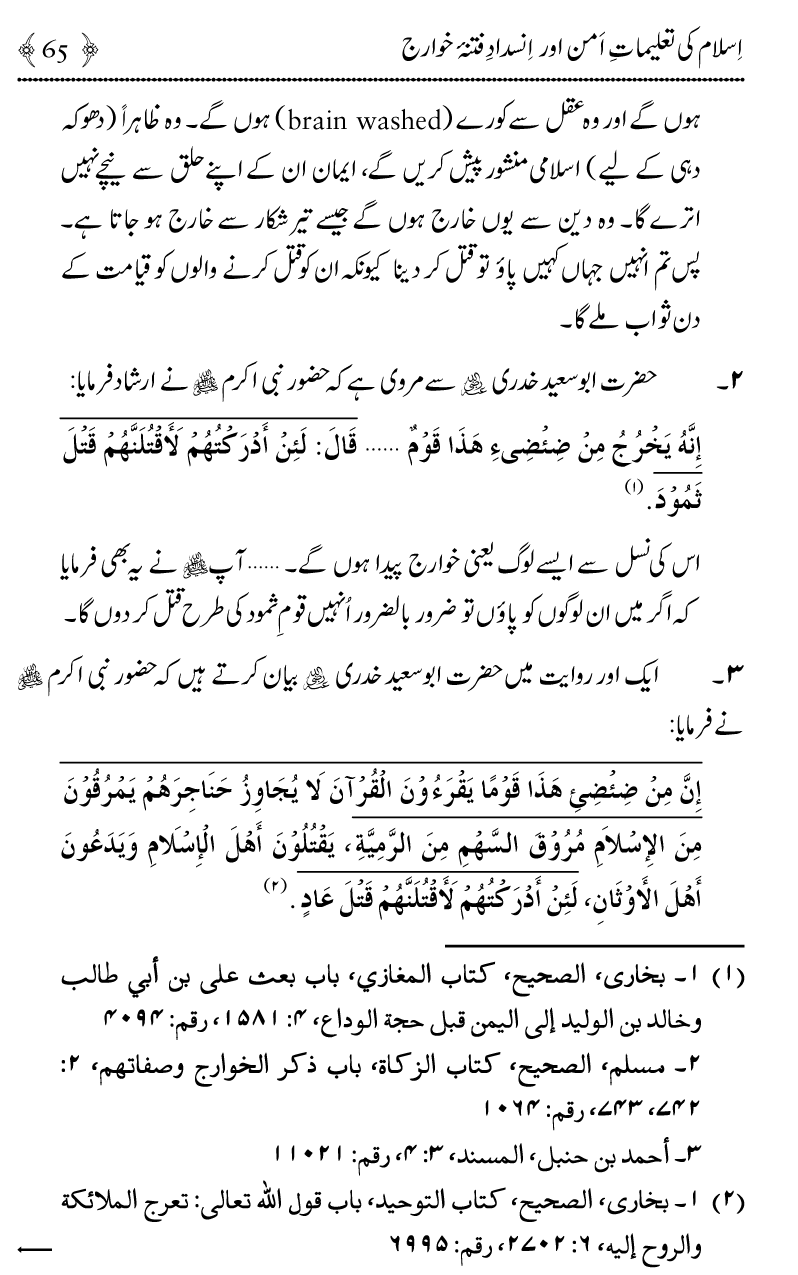 اِسلام کی تعلیماتِ اَمن اور اِنسدادِ فتنۂ خوارج ﴿ 65 ﴾
ہوں گے اور وہ عقل سے کورے (brain washed) ہوں گے۔ وہ ظاہراً (دھوکہ
دہی کے لیے) اسلامی منشور پیش کریں گے، ایمان ان کے اپنے حلق سے نیچے نہیں
اترے گا۔ وہ دین سے یوں خارج ہوں گے جیسے تیر شکار سے خارج ہو جاتا ہے۔
پس تم انہیں جہاں کہیں پاؤ تو قتل کر دینا کیونکہ ان کو قتل کرنے والوں کو قیامت کے
دن ثواب ملے گا۔
۲۔ حضرت ابوسعید خدری رضی اللہ عنہ سے مروی ہے کہ حضور نبی اکرم ﷺ نے ارشاد فرمایا:
إِنَّهُ يَخْرُجُ مِنْ ضِئْضِىءِ هَذَا قَوْمٌ ...... قَالَ: لَئِنْ أَدْرَكْتُهُمْ لَأَقْتُلَنَّهُمْ قَتْلَ
ثَمُوْدَ. (۱)
اس کی نسل سے ایسے لوگ یعنی خوارج پیدا ہوں گے۔ ...... آپ ﷺ نے یہ بھی فرمایا
کہ اگر میں ان لوگوں کو پاؤں تو ضرور بالضرور اُنہیں قومِ ثمود کی طرح قتل کر دوں گا۔
۳۔ ایک اور روایت میں حضرت ابوسعید خدری رضی اللہ عنہ بیان کرتے ہیں کہ حضور نبی اکرم ﷺ
نے فرمایا:
إِنَّ مِنْ ضِئْضِئِ هَذَا قَوْمًا يَقْرَءُوْنَ الْقُرْآنَ لَا يُجَاوِزُ حَنَاجِرَهُمْ يَمْرُقُوْنَ
مِنَ الإِسْلَامِ مُرُوْقَ السَّهْمِ مِنَ الرَّمِيَّةِ، يَقْتُلُوْنَ أَهْلَ الْإِسْلَامِ وَيَدَعُوْنَ
أَهْلَ الْأَوْثَانِ، لَئِنْ أَدْرَكْتُهُمْ لَأَقْتُلَنَّهُمْ قَتْلَ عَادٍ. (۲)
(۱) ۱۔ بخاری، الصحيح، كتاب المغازي، باب بعث على بن أبي طالب
وخالد بن الوليد إلى اليمن قبل حجة الوداع، ۴: ۱۵۸۱، رقم: ۴۰۹۴
۲۔ مسلم، الصحيح، كتاب الزكاة، باب ذكر الخوارج وصفاتهم، ۲:
۷۴۲، ۷۴۳، رقم: ۱۰۶۴
۳۔ أحمد بن حنبل، المسند، ۳: ۴، رقم: ۱۱۰۲۱
(۲) ۱۔ بخاری، الصحيح، كتاب التوحيد، باب قول الله تعالى: تعرج الملائكة
والروح إليه، ۶: ۲۷۰۲، رقم: ۶۹۹۵